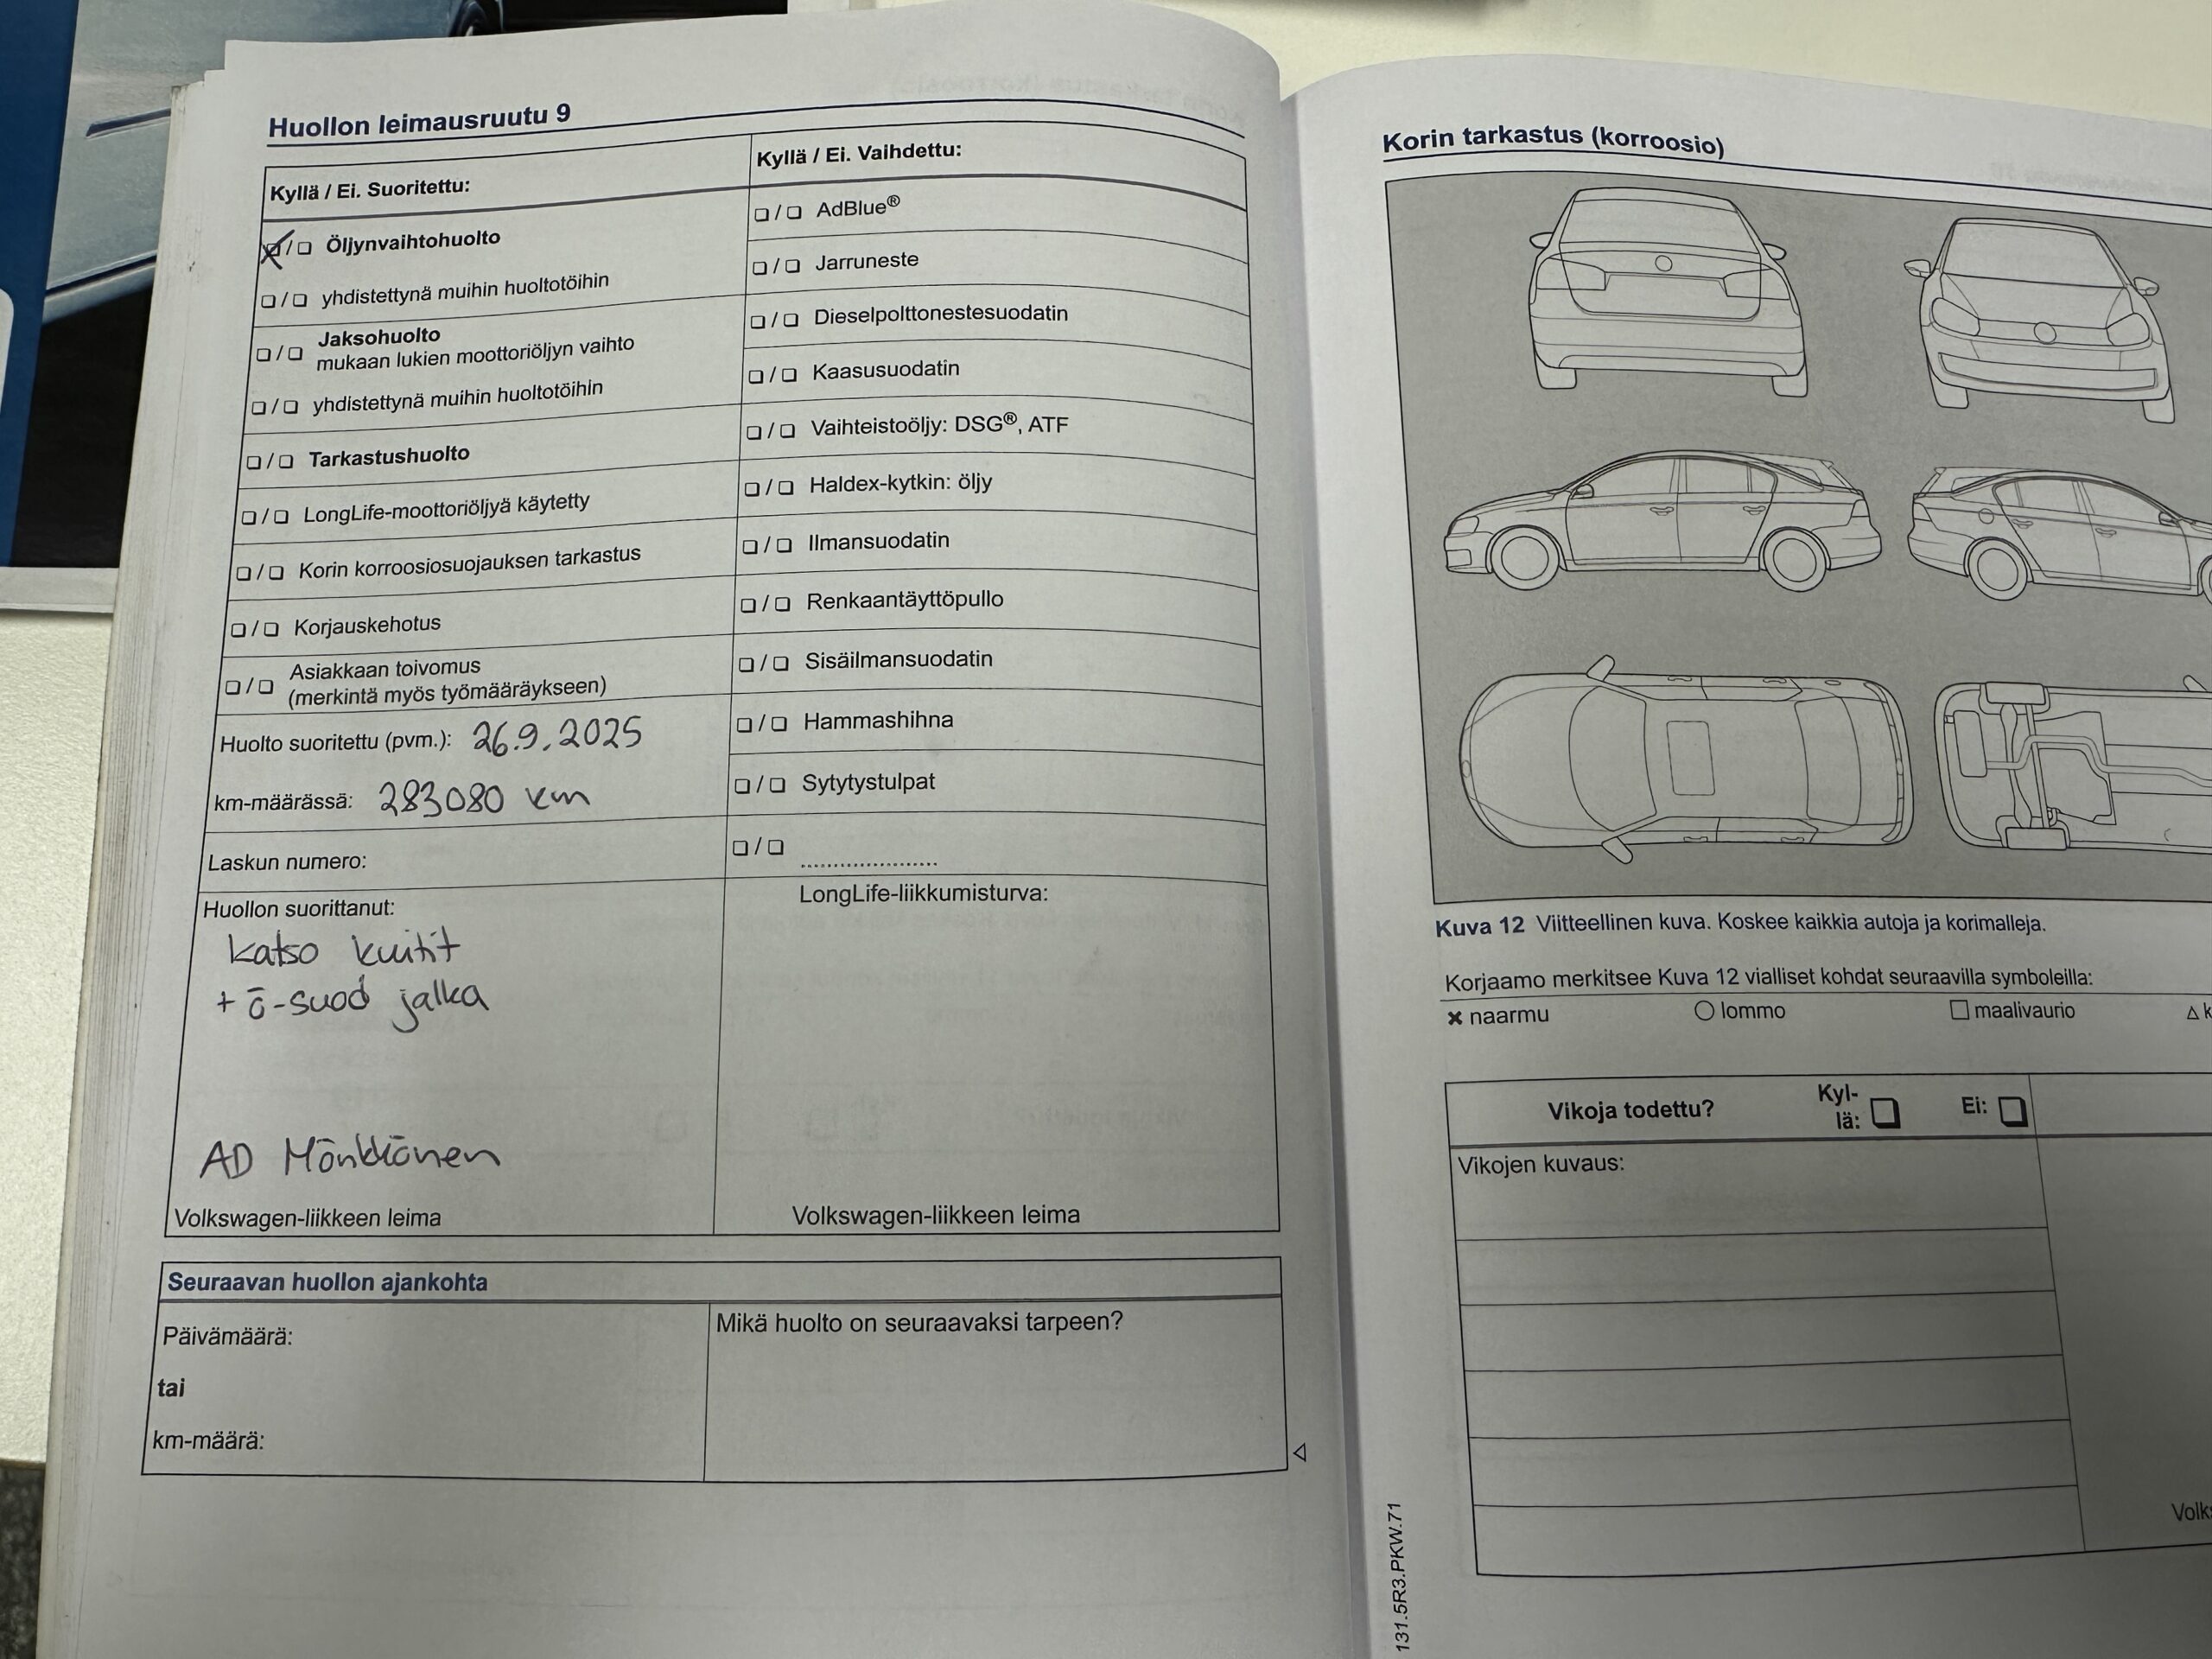 Huollon leimausruutu 9
Kyllä / Ei. Suoritettu:
❏ / ❏ Öljynvaihtohuolto
❏ / ❏ yhdistettynä muihin huoltotöihin
❏ / ❏ Jaksohuolto
mukaan lukien moottoriöljyn vaihto
❏ / ❏ yhdistettynä muihin huoltotöihin
❏ / ❏ Tarkastushuolto
❏ / ❏ LongLife-moottoriöljyä käytetty
❏ / ❏ Korin korroosiosuojauksen tarkastus
❏ / ❏ Korjauskehotus
❏ / ❏ Asiakkaan toivomus
(merkintä myös työmääräykseen)
Huolto suoritettu (pvm.): 26.9.2025
km-määrässä: 283080 km
Laskun numero:
Huollon suorittanut:
katso kuitit
+ ö-suod jalka
AD Mönkkönen
Volkswagen-liikkeen leima
Kyllä / Ei. Vaihdettu:
❏ / ❏ AdBlue®
❏ / ❏ Jarruneste
❏ / ❏ Dieselpolttonestesuodatin
❏ / ❏ Kaasusuodatin
❏ / ❏ Vaihteistoöljy: DSG®, ATF
❏ / ❏ Haldex-kytkin: öljy
❏ / ❏ Ilmansuodatin
❏ / ❏ Renkaantäyttöpullo
❏ / ❏ Sisäilmansuodatin
❏ / ❏ Hammashihna
❏ / ❏ Sytytystulpat
❏ / ❏ ......................
LongLife-liikkumisturva:
Volkswagen-liikkeen leima
Seuraavan huollon ajankohta
Päivämäärä:
tai
km-määrä:
Mikä huolto on seuraavaksi tarpeen?
Korin tarkastus (korroosio)
Kuva 12 Viitteellinen kuva. Koskee kaikkia autoja ja korimalleja.
Korjaamo merkitsee Kuva 12 vialliset kohdat seuraavilla symboleilla:
✖ naarmu ○ lommo □ maalivaurio △ k
Vikoja todettu? Kyl-
lä: ❏ Ei: ❏
Vikojen kuvaus:
Volks
131.5R3.PKW.71